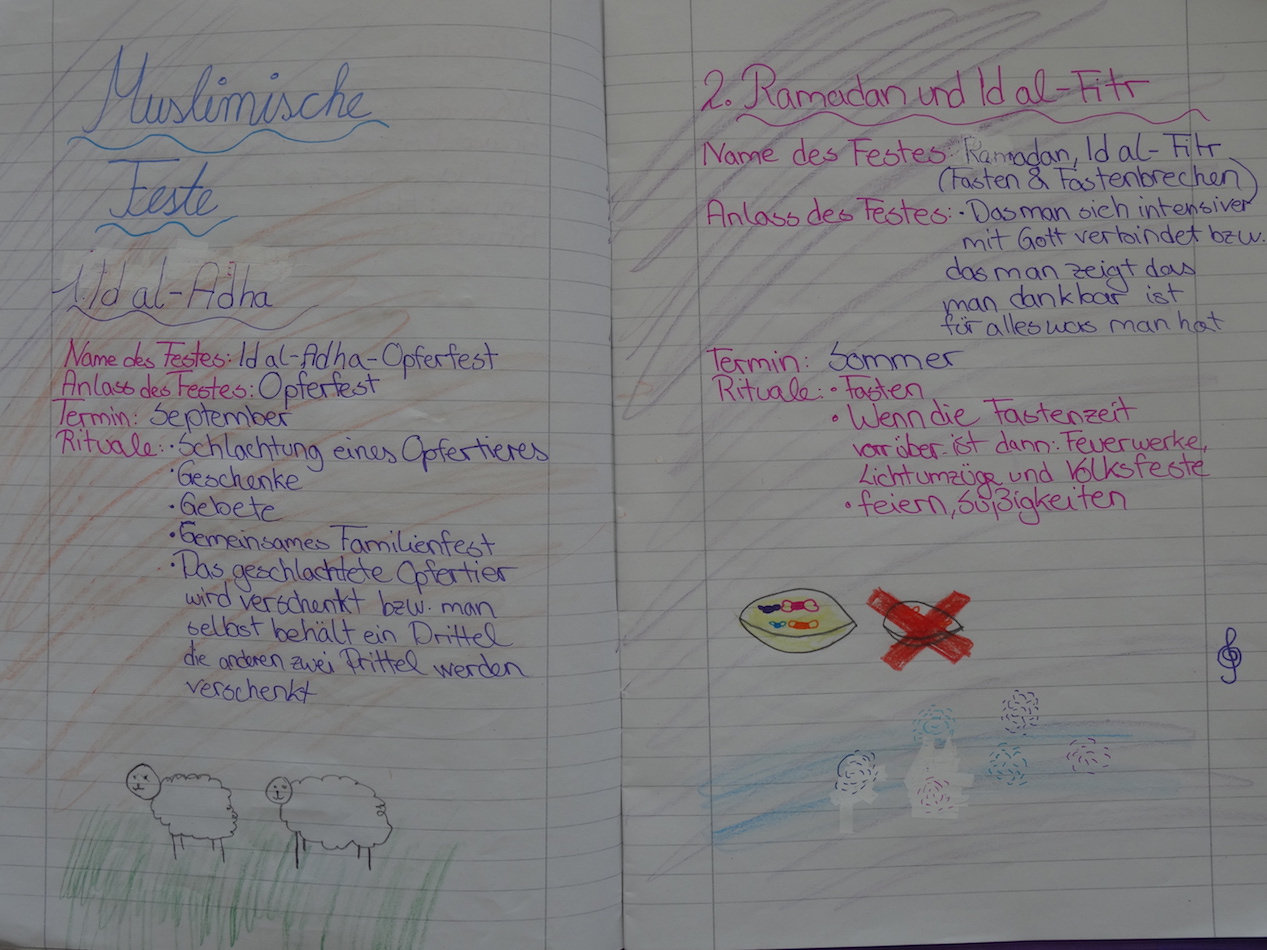 Muslimische
Feste
1. Id al-Adha
Name des Festes: Id al-Adha-Opferfest
Anlass des Festes: Opferfest
Termin: September
Rituale: · Schlachtung eines Opfertieres
· Geschenke
· Gebete
· Gemeinsames Familienfest
· Das geschlachtete Opfertier
wird verschenkt bzw. man
selbst behält ein Drittel
die anderen zwei Drittel werden
verschenkt
2. Ramadan und Id al-Fitr
Name des Festes: Ramadan, Id al-Fitr
(Fasten & Fastenbrechen)
Anlass des Festes: · Das man sich intensiver
mit Gott verbindet bzw.
das man zeigt das
man dankbar ist
für alles was man hat
Termin: Sommer
Rituale: · Fasten
· Wenn die Fastenzeit
vorrüber ist dann: Feuerwerke,
Lichtumzüge und Volksfeste
· feiern, Süßigkeiten